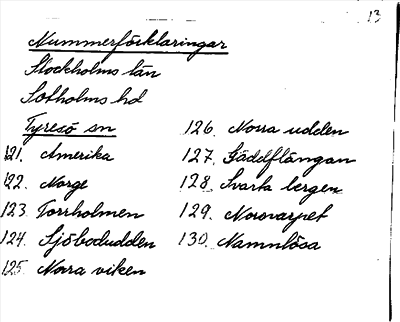 13
Nummerförklaringar
Stockholms län
Sotholms hd
Tyresö sn
121. Amerika
122. Norge
123. Torrholmen
124. Sjöbodudden
125. Norra viken
126. Norra udden
127. Gäddflängan
128. Svarta bergen
129. Norsvarpet
130. Namnlösa